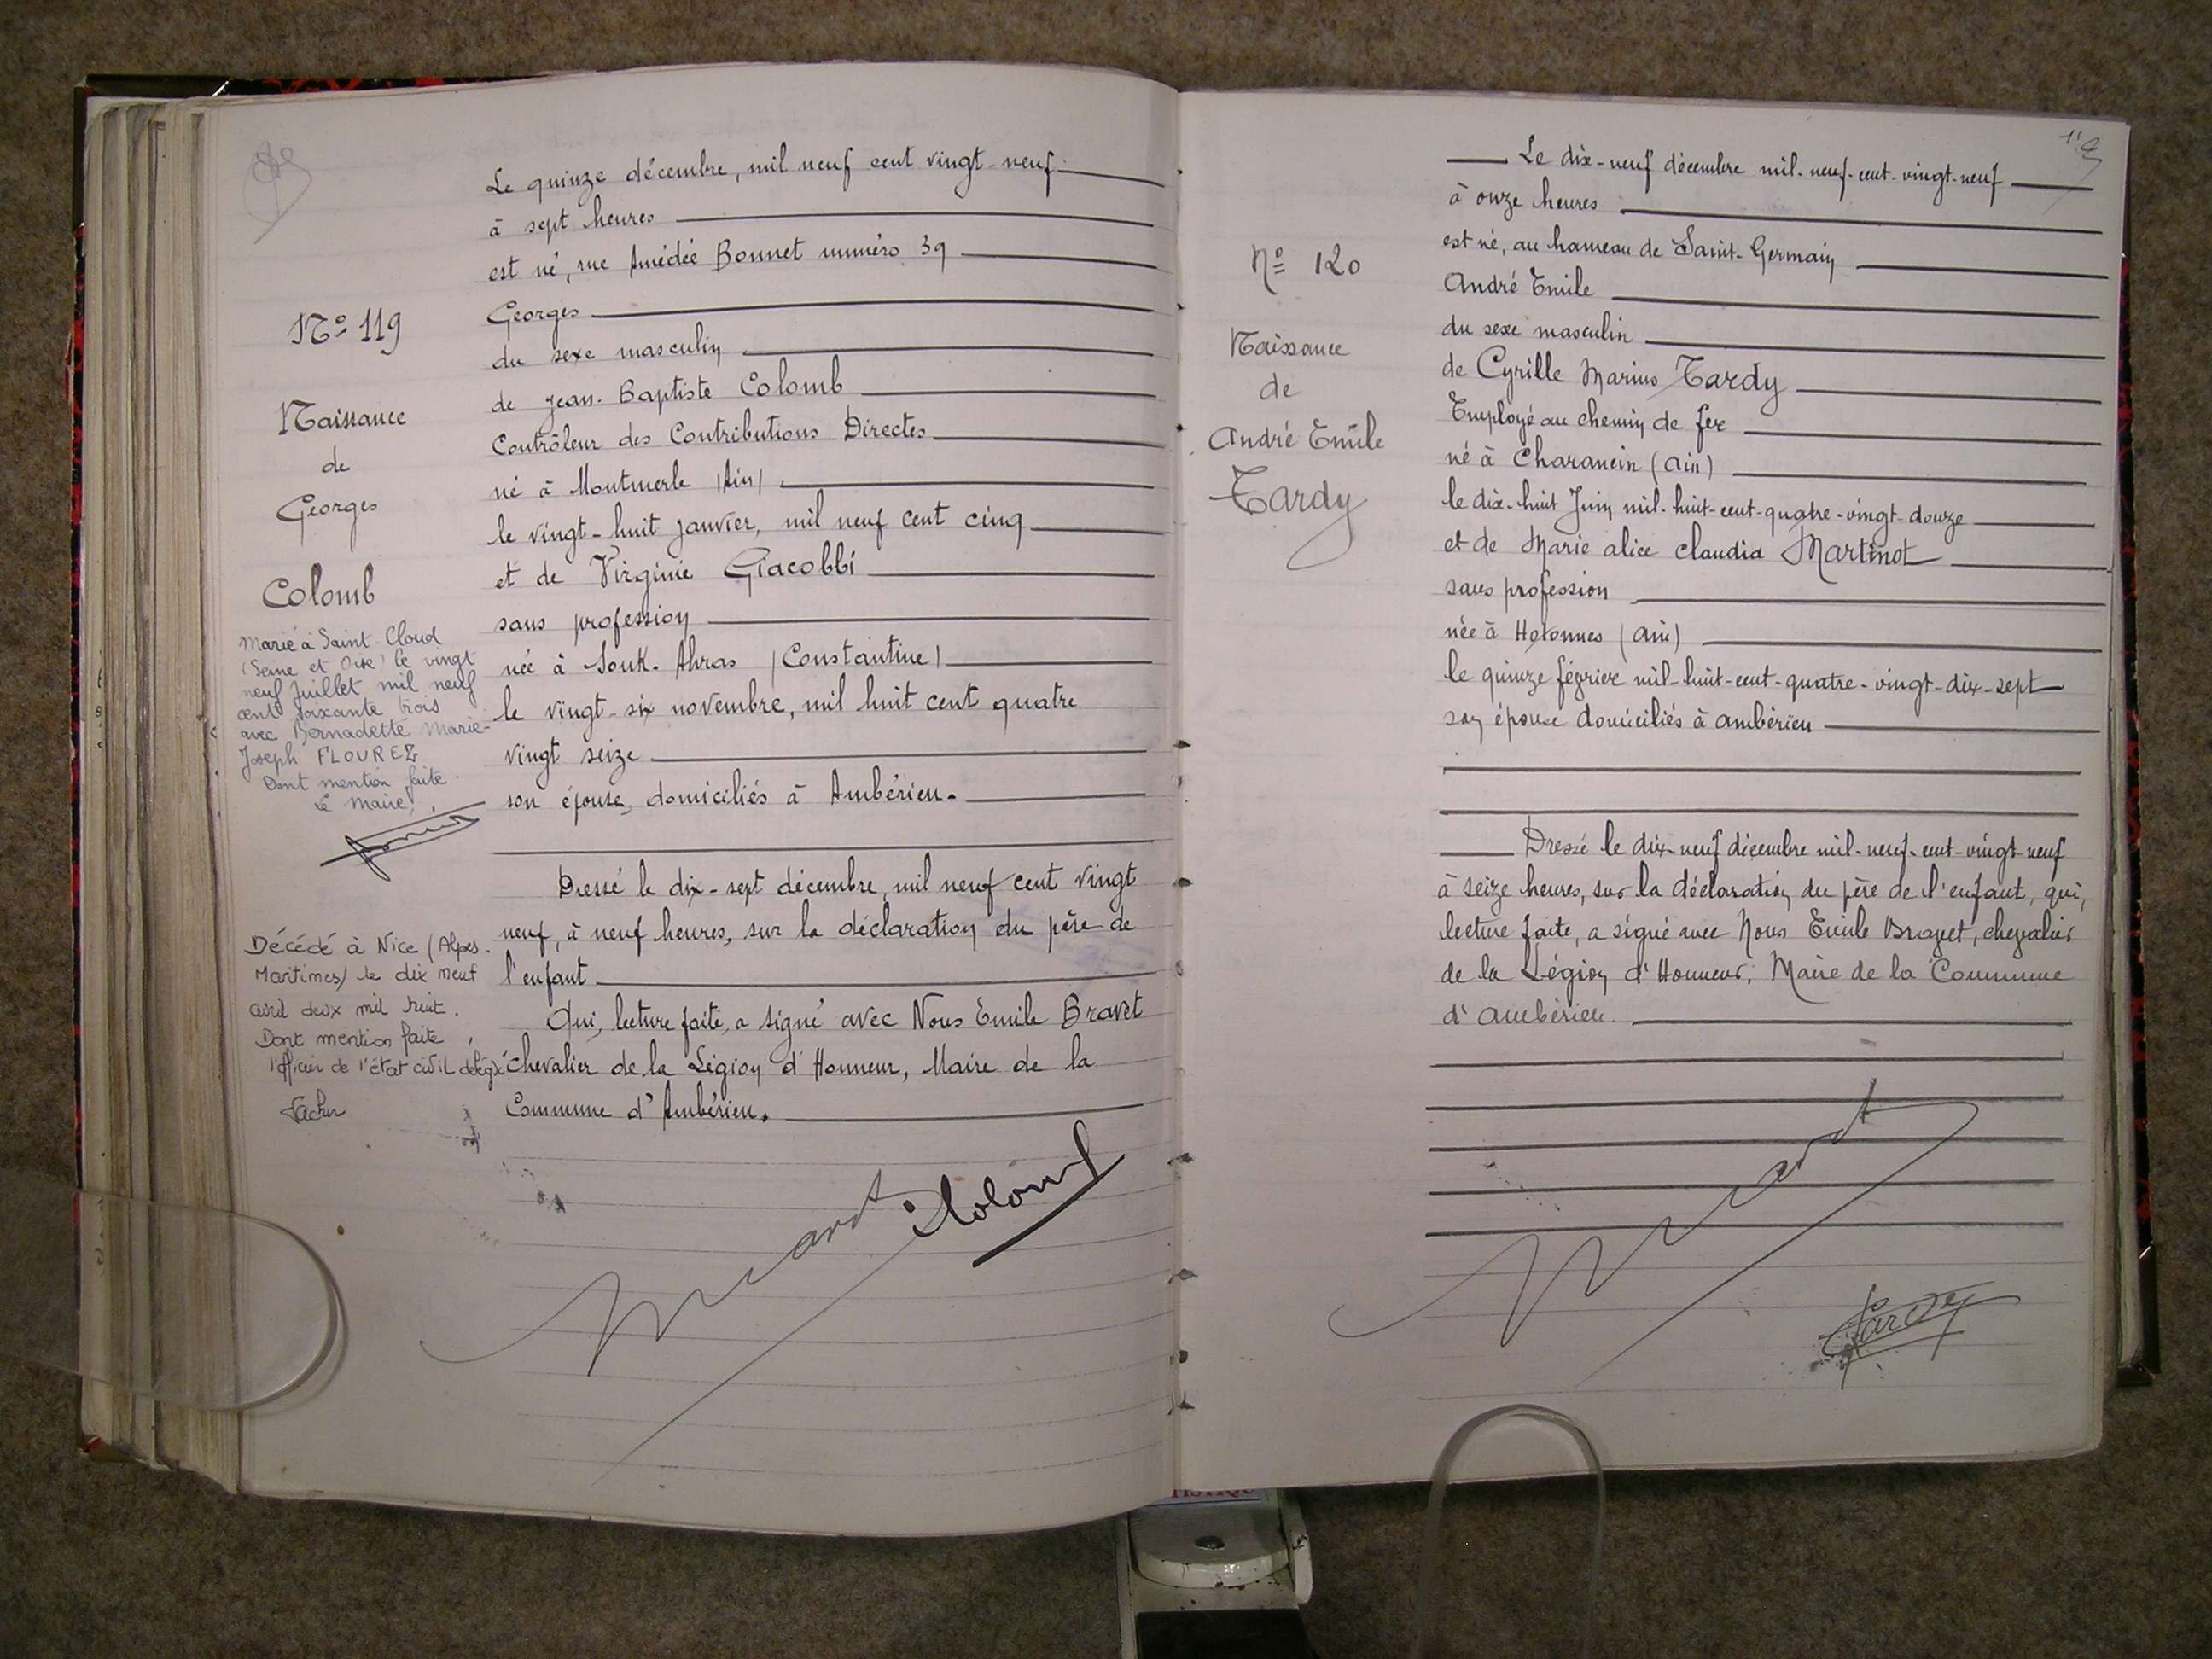 N° 119
Naissance
de
Georges
Colomb
Marié à Saint-Cloud
(Seine et Oise) le vingt
neuf Juillet mil neuf
cent soixante trois
avec Bernadette Marie-
Joseph FLOUREZ
Dont mention faite.
Le Maire,
Décédé à Nice (Alpes-
Maritimes) le dix neuf
avril deux mil huit.
Dont mention faite,
l'officier de l'état civil délégué
Le quinze décembre, mil neuf cent vingt-neuf
à sept heures
est né, rue Amédée Bonnet numéro 39
Georges
du sexe masculin
de Jean-Baptiste Colomb
Contrôleur des Contributions Directes
né à Montmerle (Ain)
le vingt-huit janvier, mil neuf cent cinq
et de Virginie Giacobbi
sans profession
née à Souk-Ahras (Constantine)
le vingt-six novembre, mil huit cent quatre
vingt seize
son épouse, domiciliés à Ambérieu.
Dressé le dix-sept décembre, mil neuf cent vingt
neuf, à neuf heures, sur la déclaration du père de
l'enfant
Qui, lecture faite, a signé avec Nous Emile Bravet
Chevalier de la Légion d'Honneur, Maire de la
Commune d'Ambérieu.
Colomb
N° 120
Naissance
de
André Emile
Tardy
Le dix-neuf décembre mil-neuf-cent-vingt-neuf
à onze heures
est né, au hameau de Saint-Germain
André Emile
du sexe masculin
de Cyrille Marius Tardy
Employé au chemin de fer
né à Charancin (Ain)
le dix-huit Juin mil-huit-cent-quatre-vingt-douze
et de Marie Alice Claudia Martinot
sans profession
née à Hotonnes (Ain)
le quinze février mil-huit-cent-quatre-vingt-dix-sept
son épouse domiciliés à Ambérieu
Dressé le dix-neuf décembre mil-neuf-cent-vingt-neuf
à seize heures, sur la déclaration du père de l'enfant, qui,
lecture faite, a signé avec Nous Emile Bravet, chevalier
de la Légion d'Honneur, Maire de la Commune
d'Ambérieu.
Tardy